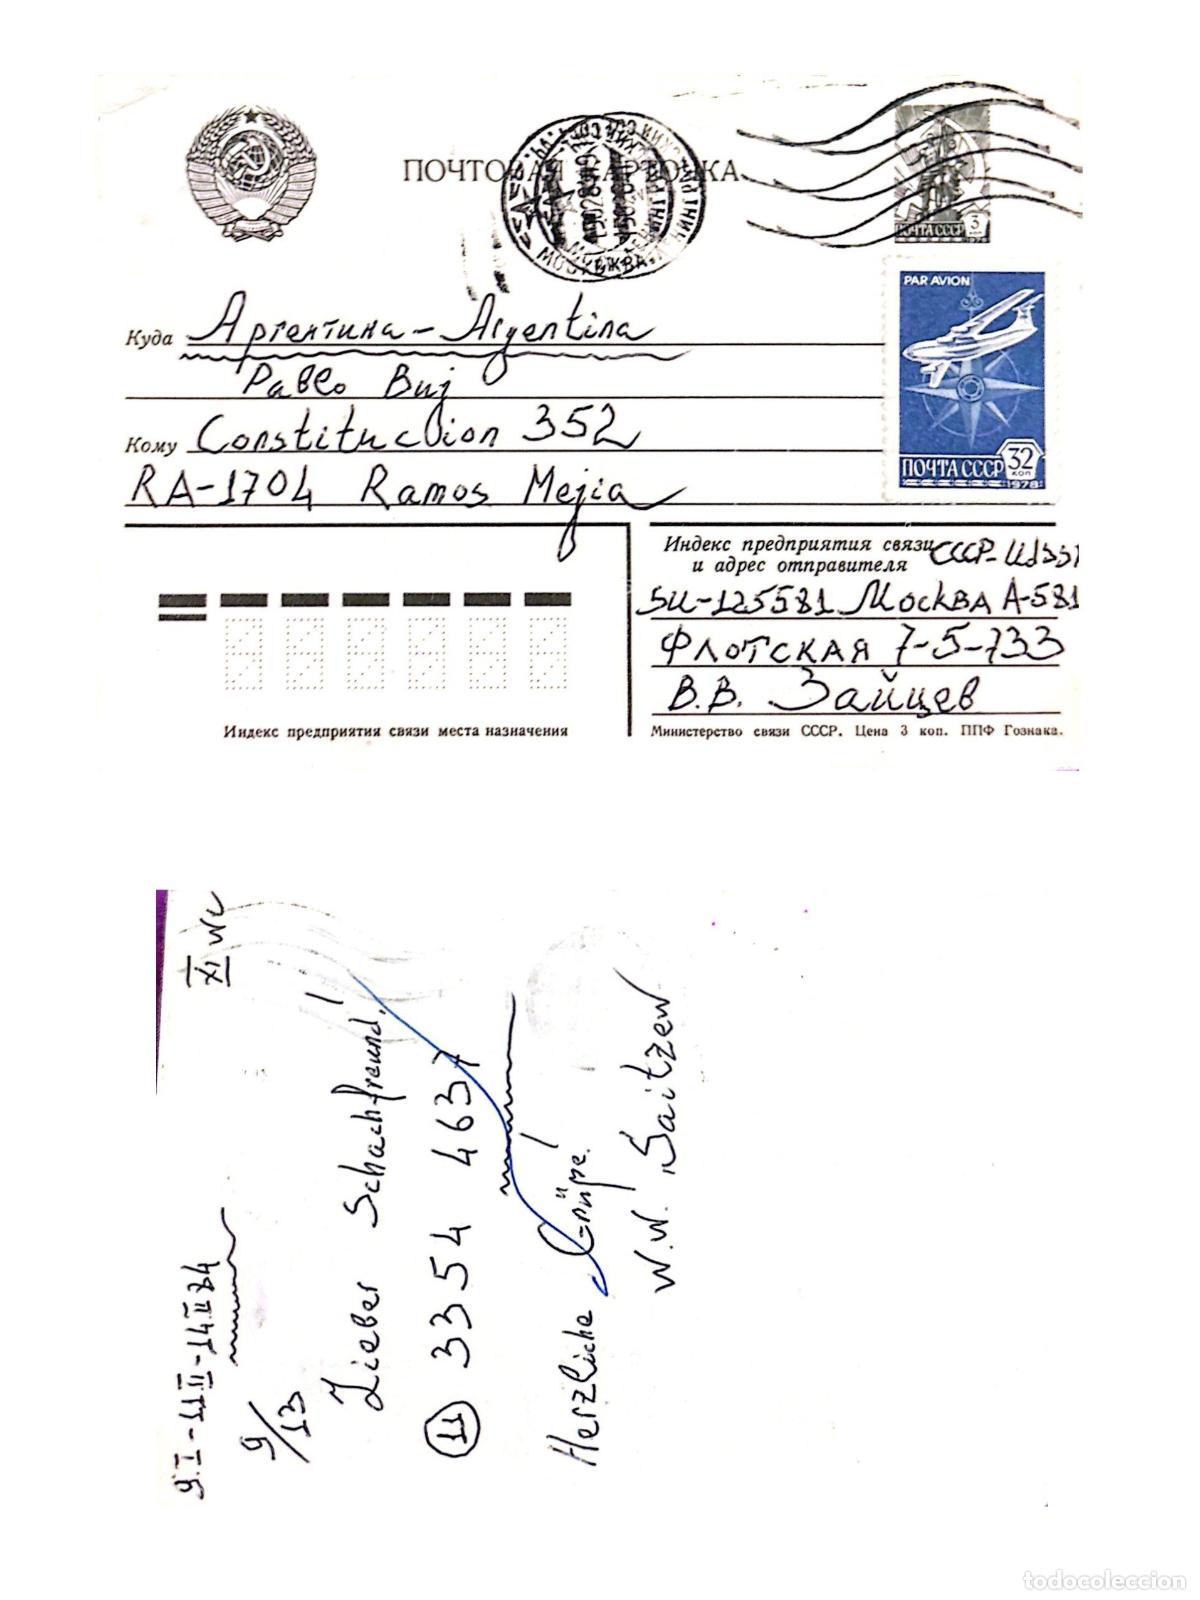 ПОЧТОВАЯ КАРТОЧКА
МОСКВА
ПОЧТА СССР 3 коп
PAR AVION
ПОЧТА СССР 32 КОП
1978
Куда Аргентина – Argentina
Pablo Buj
Кому Constitucion 352
RA-1704 Ramos Mejia
Индекс предприятия связи
и адрес отправителя
СССР-
SU-125581 Москва А-581
Флотская 7-5-733
В.В. Зайцев
Индекс предприятия связи места назначения
Министерство связи СССР. Цена 3 коп. ППФ Гознака.
9.I-11.II-14.II.84
XI
9/13
Lieber Schachfreund!
11 3354 4637
Herzliche Grüße!
W.W. Saitzew
todocoleccion